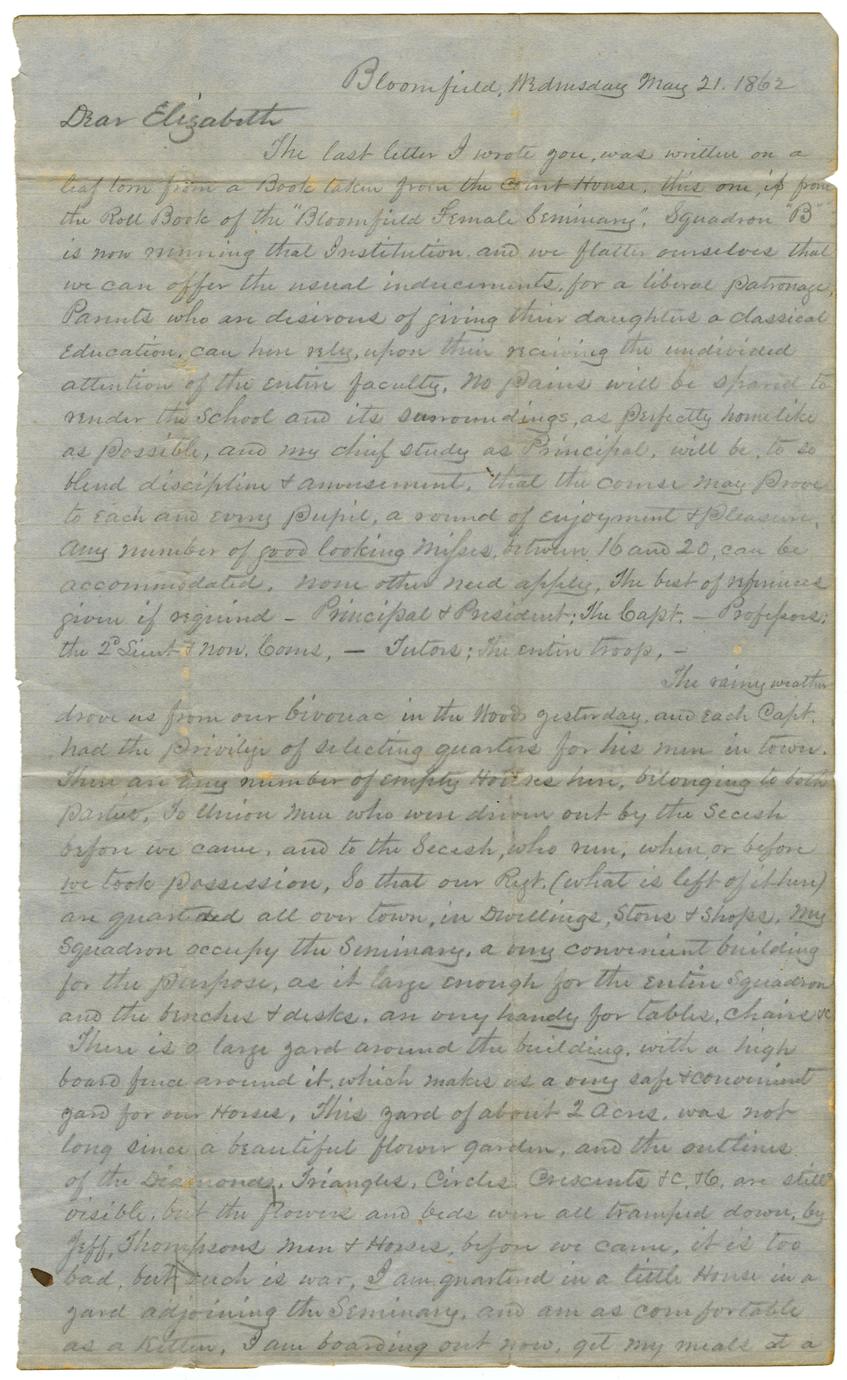 Bloomfield, Wednesday May 21. 1862
Dear Elizabeth
The last letter I wrote you, was written on a
leaf torn from a Book taken from the Court House, this one, is from
the Roll Book of the "Bloomfield Female Seminary". Squadron "B"
is now running that Institution. and we flatter ourselves that
we can offer the usual inducements, for a liberal patronage,
Parents who are desirous of giving their daughters a classical
Education, can here rely, upon their reciving the undivided
attention of the entire faculty. No pains will be spared to
render the School and its surroundings, as perfectly homelike
as possible, and my chief study as Principal, will be, to so
blend discipline & amusement, that the course may prove
to Each and every pupil, a round of enjoyment & pleasure.
Any number of good looking Misses, between 16 and 20, can be
accommodated. None other need apply, The best of references
given if required – Principal & President; The Capt. – Professors;
the 2d Lieut & Non. Coms, – Tutors; The entire troop, –
The rainy weather
drove us from our bivouac in the Woods yesterday, and each Capt.
had the privilege of selecting quarters for his men in town.
There are any number of empty Houses here, belonging to both
parties, To Union Men who were driven out by the Secesh
before we came, and to the Secesh, who run, when or before
we took possession, So that our Regt. (what is left of it here)
are quartered all over town, in Dwellings, Stores & Shops. My
Squadron occupy the Seminary, a very convenient building
for the purpose, as it large enough for the entire Squadron
and the benches & desks, are very handy for tables, chairs &c
There is a large yard around the building, with a high
board fence around it, which makes us a very safe & convenient
yard for our Horses, This yard of about 2 Acres, was not
long since a beautiful flower garden, and the outlines
of the Diamonds, Triangles, Circles Crescents &c, &c. are still
visible, but the flowers and beds were all tramped down, by
Jeff, Thompsons men & Horses, before we came, it is too
bad, but such is war, I am quartered in a little House in a
yard adjoining the Seminary, and am as comfortable
as a Kitten, I am boarding out now, get my meals at a